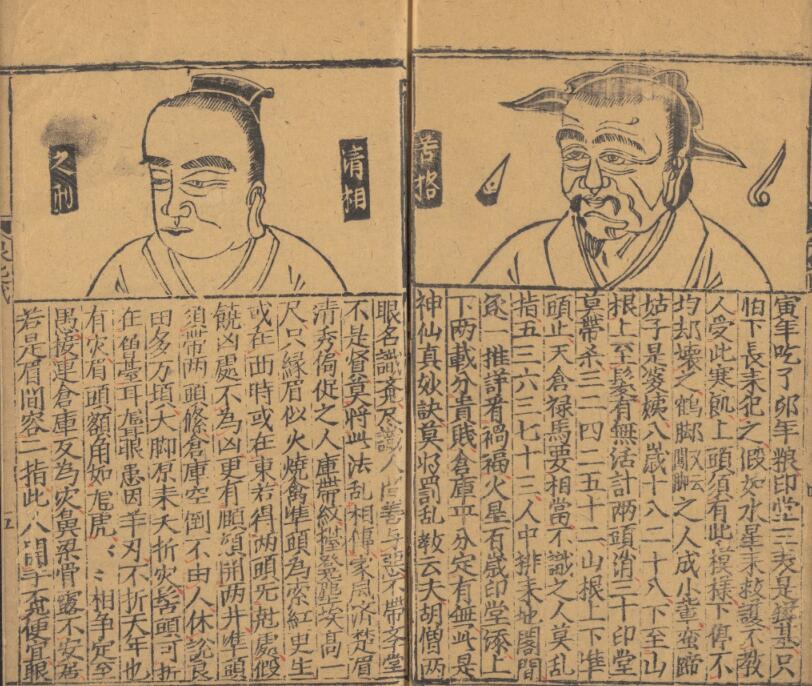 苦格
寅年吃了卯年粮印堂只
怕下長來犯之假如水星來救護不教
人受此寒飢上頭須有此模樣下停不
均却壞之鶴脚又云闊脚之人成小輩蛮蹄
姑子是婆姨八歲十八二十八下至山
根上至髮有無活計兩頭消三十印堂
莫帶杀三二四二五十二山根上下準
頭止天倉禄馬要相當不識之人莫乱
指五三六三七十三人中排耒地閣間
逐一推詳看禍福火星百歲印堂添上
下兩截分貴賎倉庫平分定有無此是
神仙真妙訣莫將罰乱教云夫胡僧两
清相
之刑
眼名識不帶孛堂
不是賢莫將此法乱相傳家風济楚眉
清秀促之人庫帶紋埃高一
尺只縁眉似火燒準頭為索紅史生
或在西時或在東若得两頭无尅處假
饒凶處不為凶更有頤頷開两井準頭
須帶两頭絛倉庫空倒不由人休説良
田多万頃大脚原耒夭折灾髻頭可折
在臺耳眼患因羊刃不折天年也
有灾眉頭額角如虎相争定至
愚連倉庫反為灾鼻梁骨露不安居
若是眉間容一指此人開手便宜眼